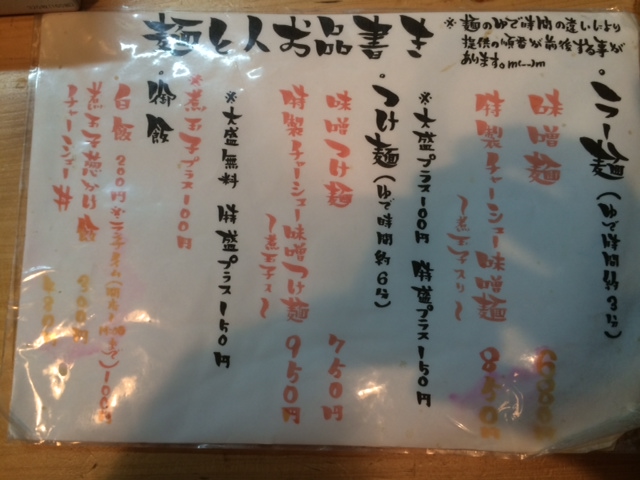 麺と人お品書き
※麺のゆで時間の違いにより
提供の順番が前後する事が
あります。m(__)m
・ラー麺（ゆで時間約3分）
味噌麺
特製チャーシュー味噌麺 850円
～煮玉子入り～
※大盛プラス100円 特盛プラス150円
・つけ麺（ゆで時間約6分）
味噌つけ麺 750円
特製チャーシュー味噌つけ麺 950円
～煮玉子入り～
※大盛無料 特盛プラス150円
※煮玉子プラス100円
・御飯
・白飯 200円
煮玉子 飯
チャーシュー丼